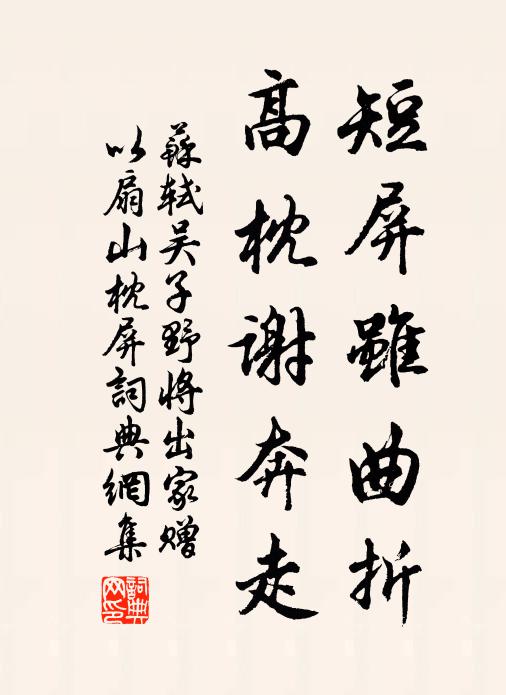 短屏雖曲折
高枕謝奔走
蘇軾吴子野將出家贈
以扇山枕屏詞典網集
詞典网印